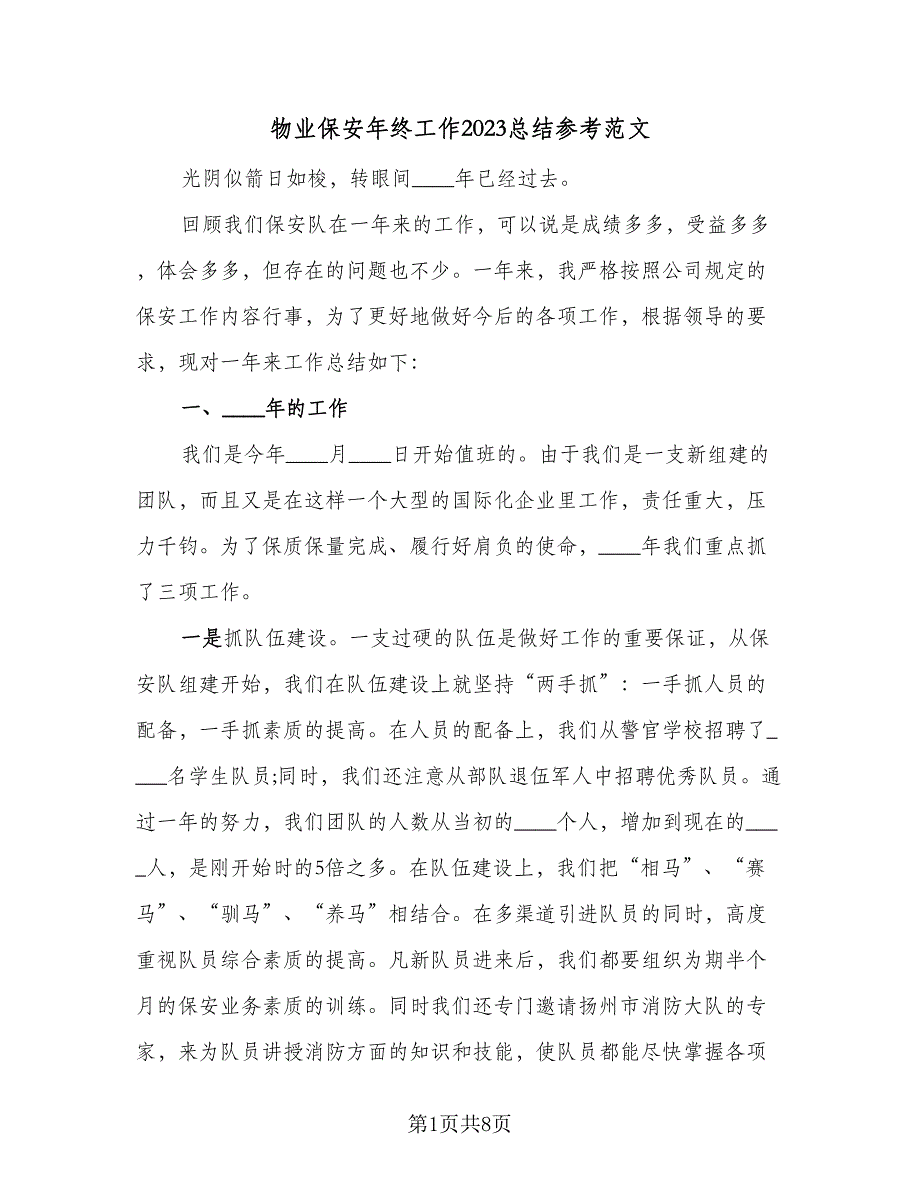 物业保安年终工作2023总结参考范文
光阴似箭日如梭，转眼间____年已经过去。
回顾我们保安队在一年来的工作，可以说是成绩多多，受益多多
，体会多多，但存在的问题也不少。一年来，我严格按照公司规定的
保安工作内容行事，为了更好地做好今后的各项工作，根据领导的要
求，现对一年来工作总结如下：
一、____年的工作
我们是今年____月____日开始值班的。由于我们是一支新组建的
团队，而且又是在这样一个大型的国际化企业里工作，责任重大，压
力千钧。为了保质保量完成、履行好肩负的使命，____年我们重点抓
了三项工作。
一是抓队伍建设。一支过硬的队伍是做好工作的重要保证，从保
安队组建开始，我们在队伍建设上就坚持“两手抓”：一手抓人员的
配备，一手抓素质的提高。在人员的配备上，我们从警官学校招聘了_
___名学生队员;同时，我们还注意从部队退伍军人中招聘优秀队员。通
过一年的努力，我们团队的人数从当初的____个人，增加到现在的___
_人，是刚开始时的5倍之多。在队伍建设上，我们把“相马”、“赛
马”、“驯马”、“养马”相结合。在多渠道引进队员的同时，高度
重视队员综合素质的提高。凡新队员进来后，我们都要组织为期半个
月的保安业务素质的训练。同时我们还专门邀请扬州市消防大队的专
家，来为队员讲授消防方面的知识和技能，使队员都能尽快掌握各项
第1页共8页